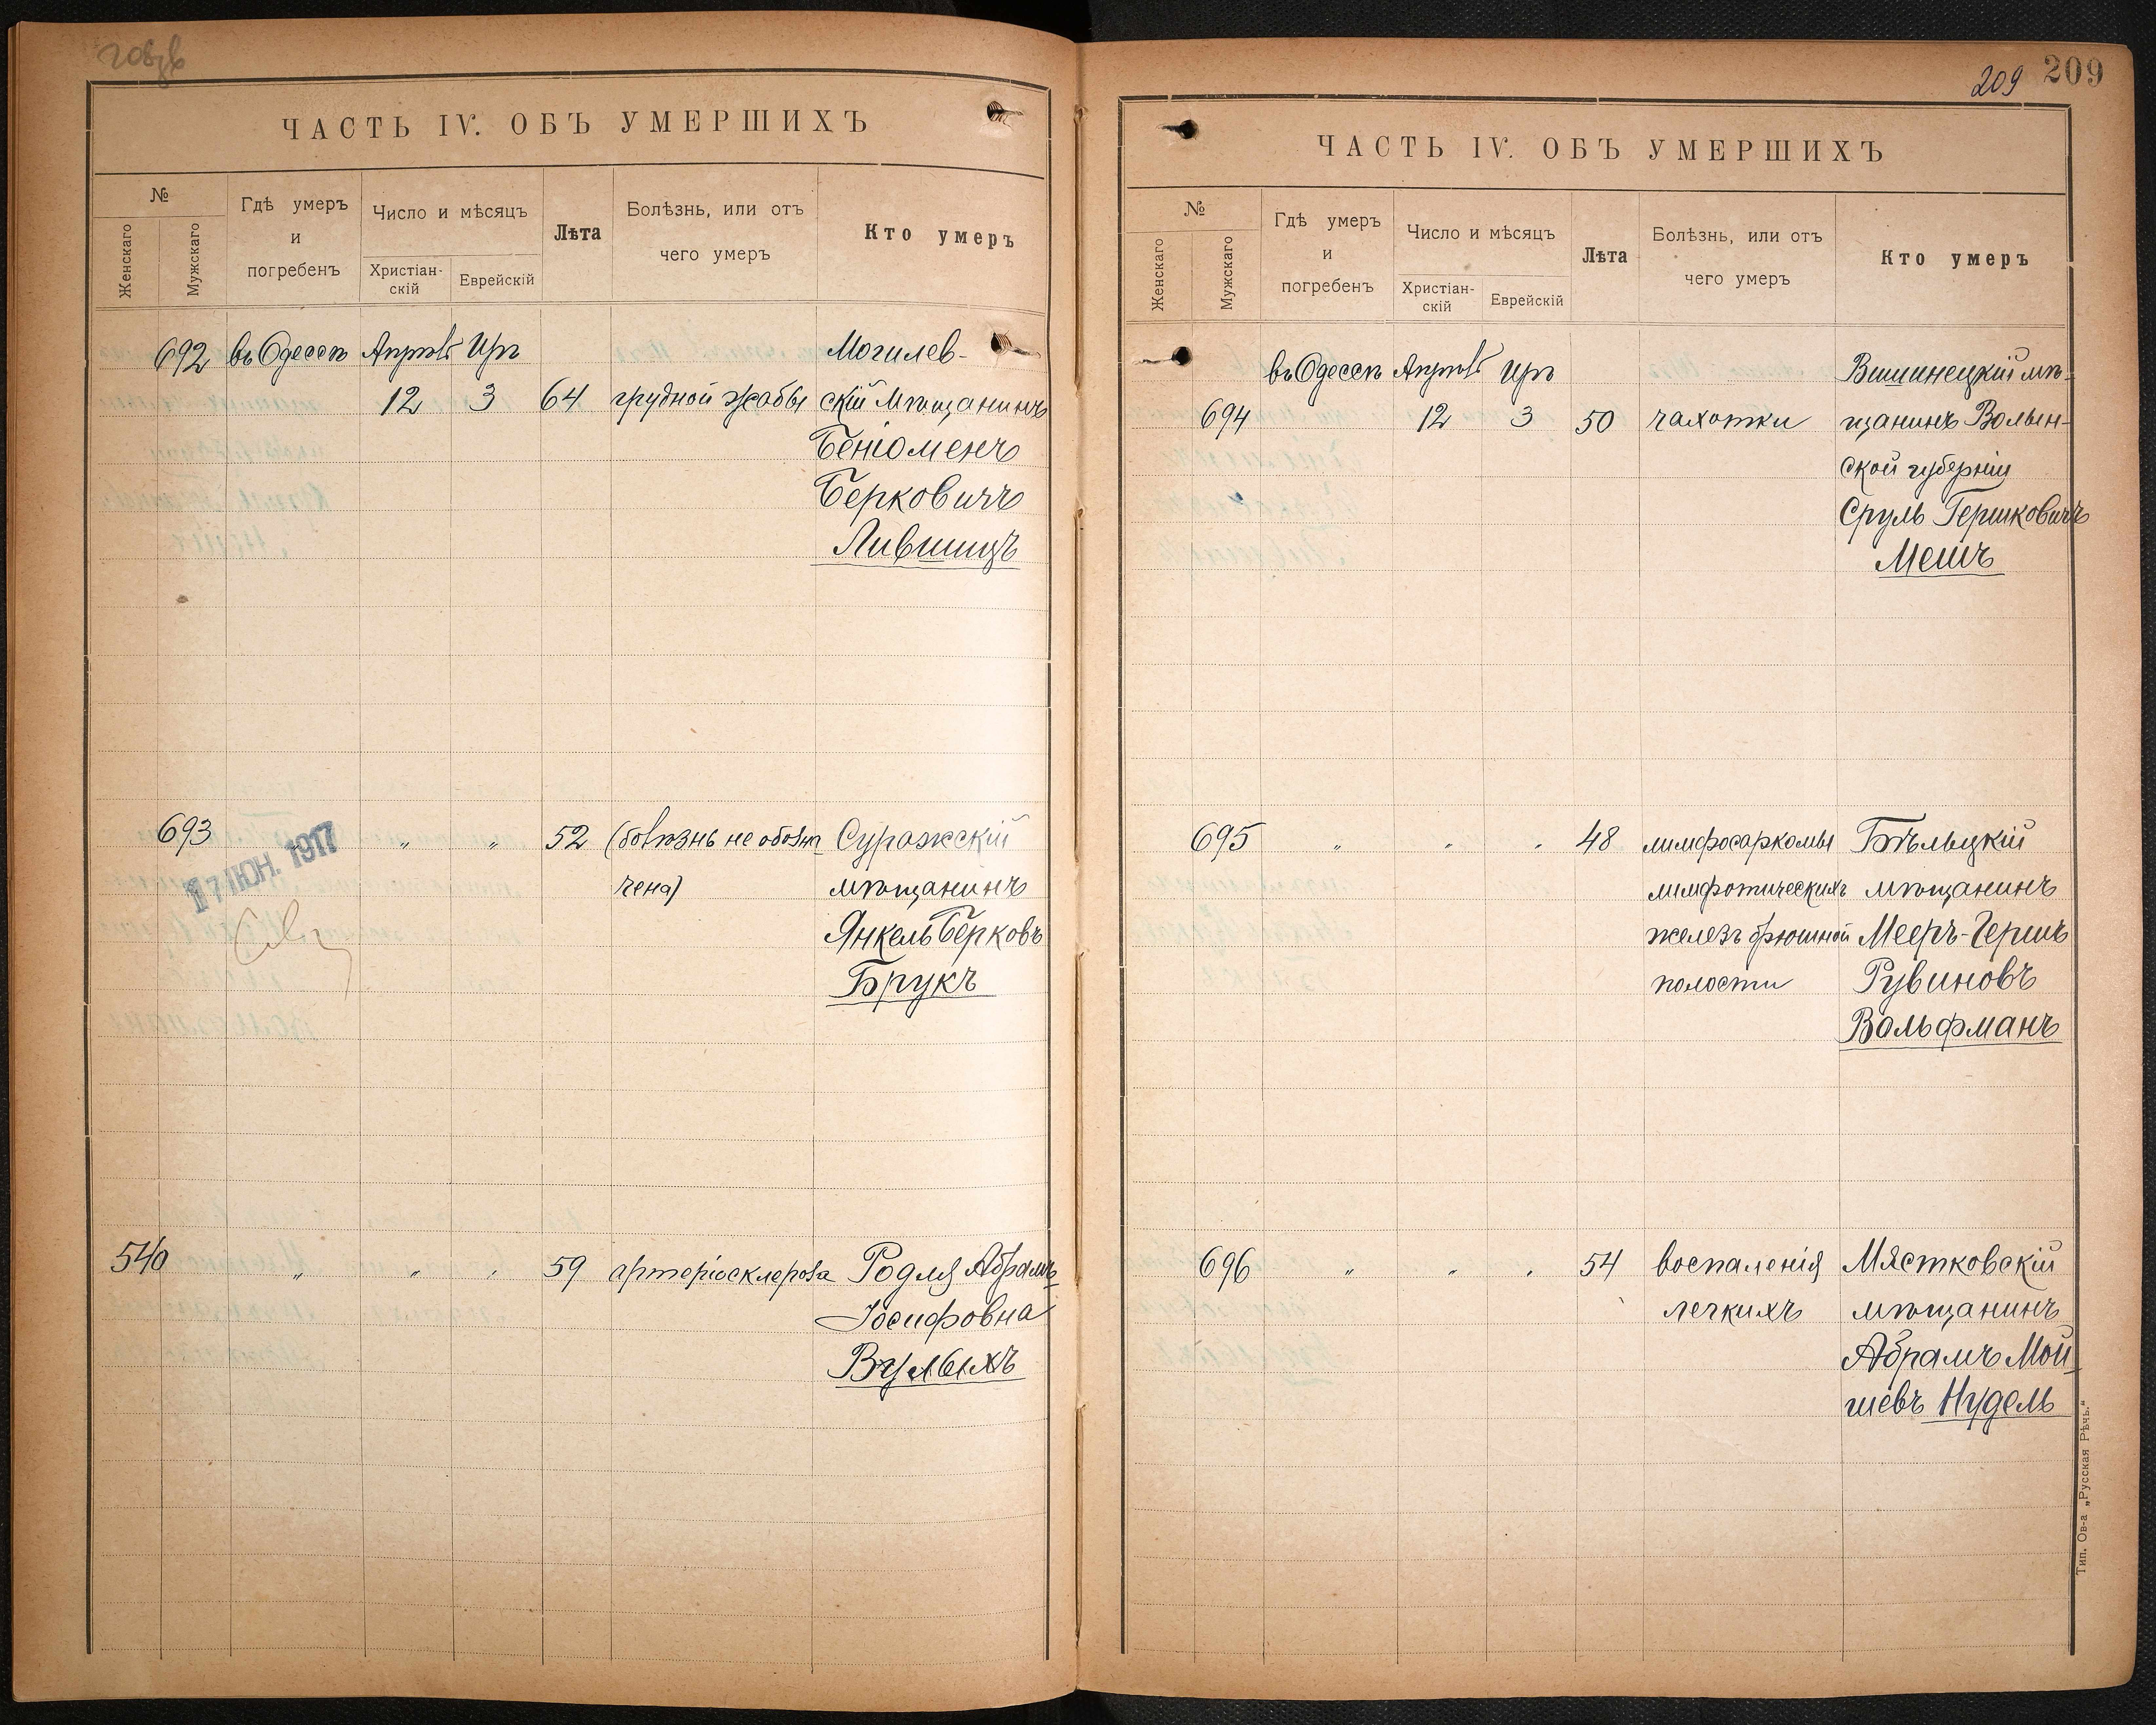 ЧАСТЬ IV. ОБЪ УМЕРШИХЪ
№
Женскаго
Мужскаго
Гдѣ умеръ
и
погребенъ
Число и мѣсяцъ
Христіан-
скій
Еврейскій
Лѣта
Болѣзнь, или отъ
чего умеръ
Кто умеръ
692 въ Одессѣ Апрѣль Иръ Могилев-
12 3 64 грудной жабы скій мѣщанинъ
Беніоменъ
Берковичъ
Лившицъ
693 " " " 52 (болѣзнь не обозна- Суражскій
17 ІЮН. 1917
чена) мѣщанинъ
Янкель Берковъ
Брукъ
540 " " " 59 артеріосклероза Родля Абрамъ-
Іосифовна
Вульихъ
209 209
ЧАСТЬ IV. ОБЪ УМЕРШИХЪ
№
Женскаго
Мужскаго
Гдѣ умеръ
и
погребенъ
Число и мѣсяцъ
Христіан-
скій
Еврейскій
Лѣта
Болѣзнь, или отъ
чего умеръ
Кто умеръ
въ Одессѣ Апрѣль Иръ Вишнецкій мѣ-
694 12 3 50 чахотки щанинъ Волын-
ской губерніи
Сруль Гершковичъ
Мешъ
695 " " " 48 лимфосаркомы Бѣльцкій
лимфотическихъ мѣщанинъ
железъ брюшной Мееръ-Гершъ
полости Рувиновъ
Вольфманъ
696 " " " 54 воспаленія Мястковскій
легкихъ мѣщанинъ
Абрамъ Мой-
шевъ Нудель
Тип. Ов-а „Русская Рѣчь.“